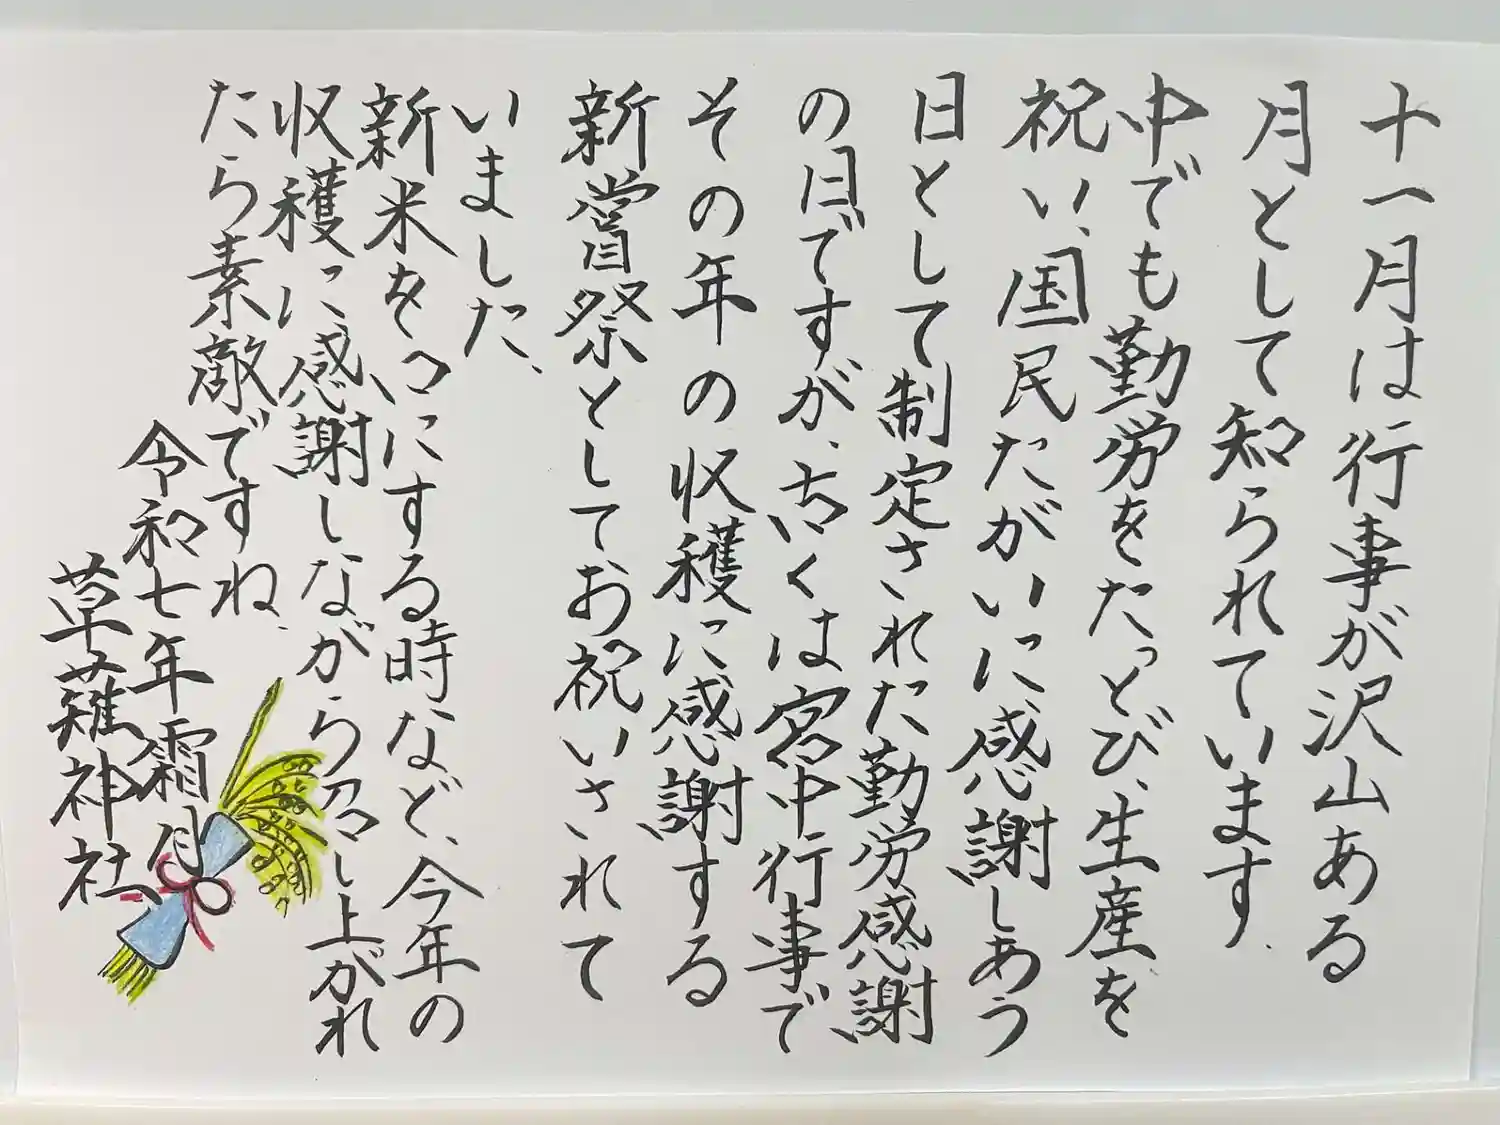 十一月は行事が沢山ある
月として知られています.
中でも勤労をたっとび、生産を
祝い、国民たがいに感謝しあう
日として制定された勤労感謝
の日ですが、古くは宮中行事で
その年の収穫に感謝する
新嘗祭としてお祝いされて
いました、
新米を口にする時など、今年の
収穫に感謝しながら召し上がれ
たら素敵ですね、
令和七年霜月
草薙神社